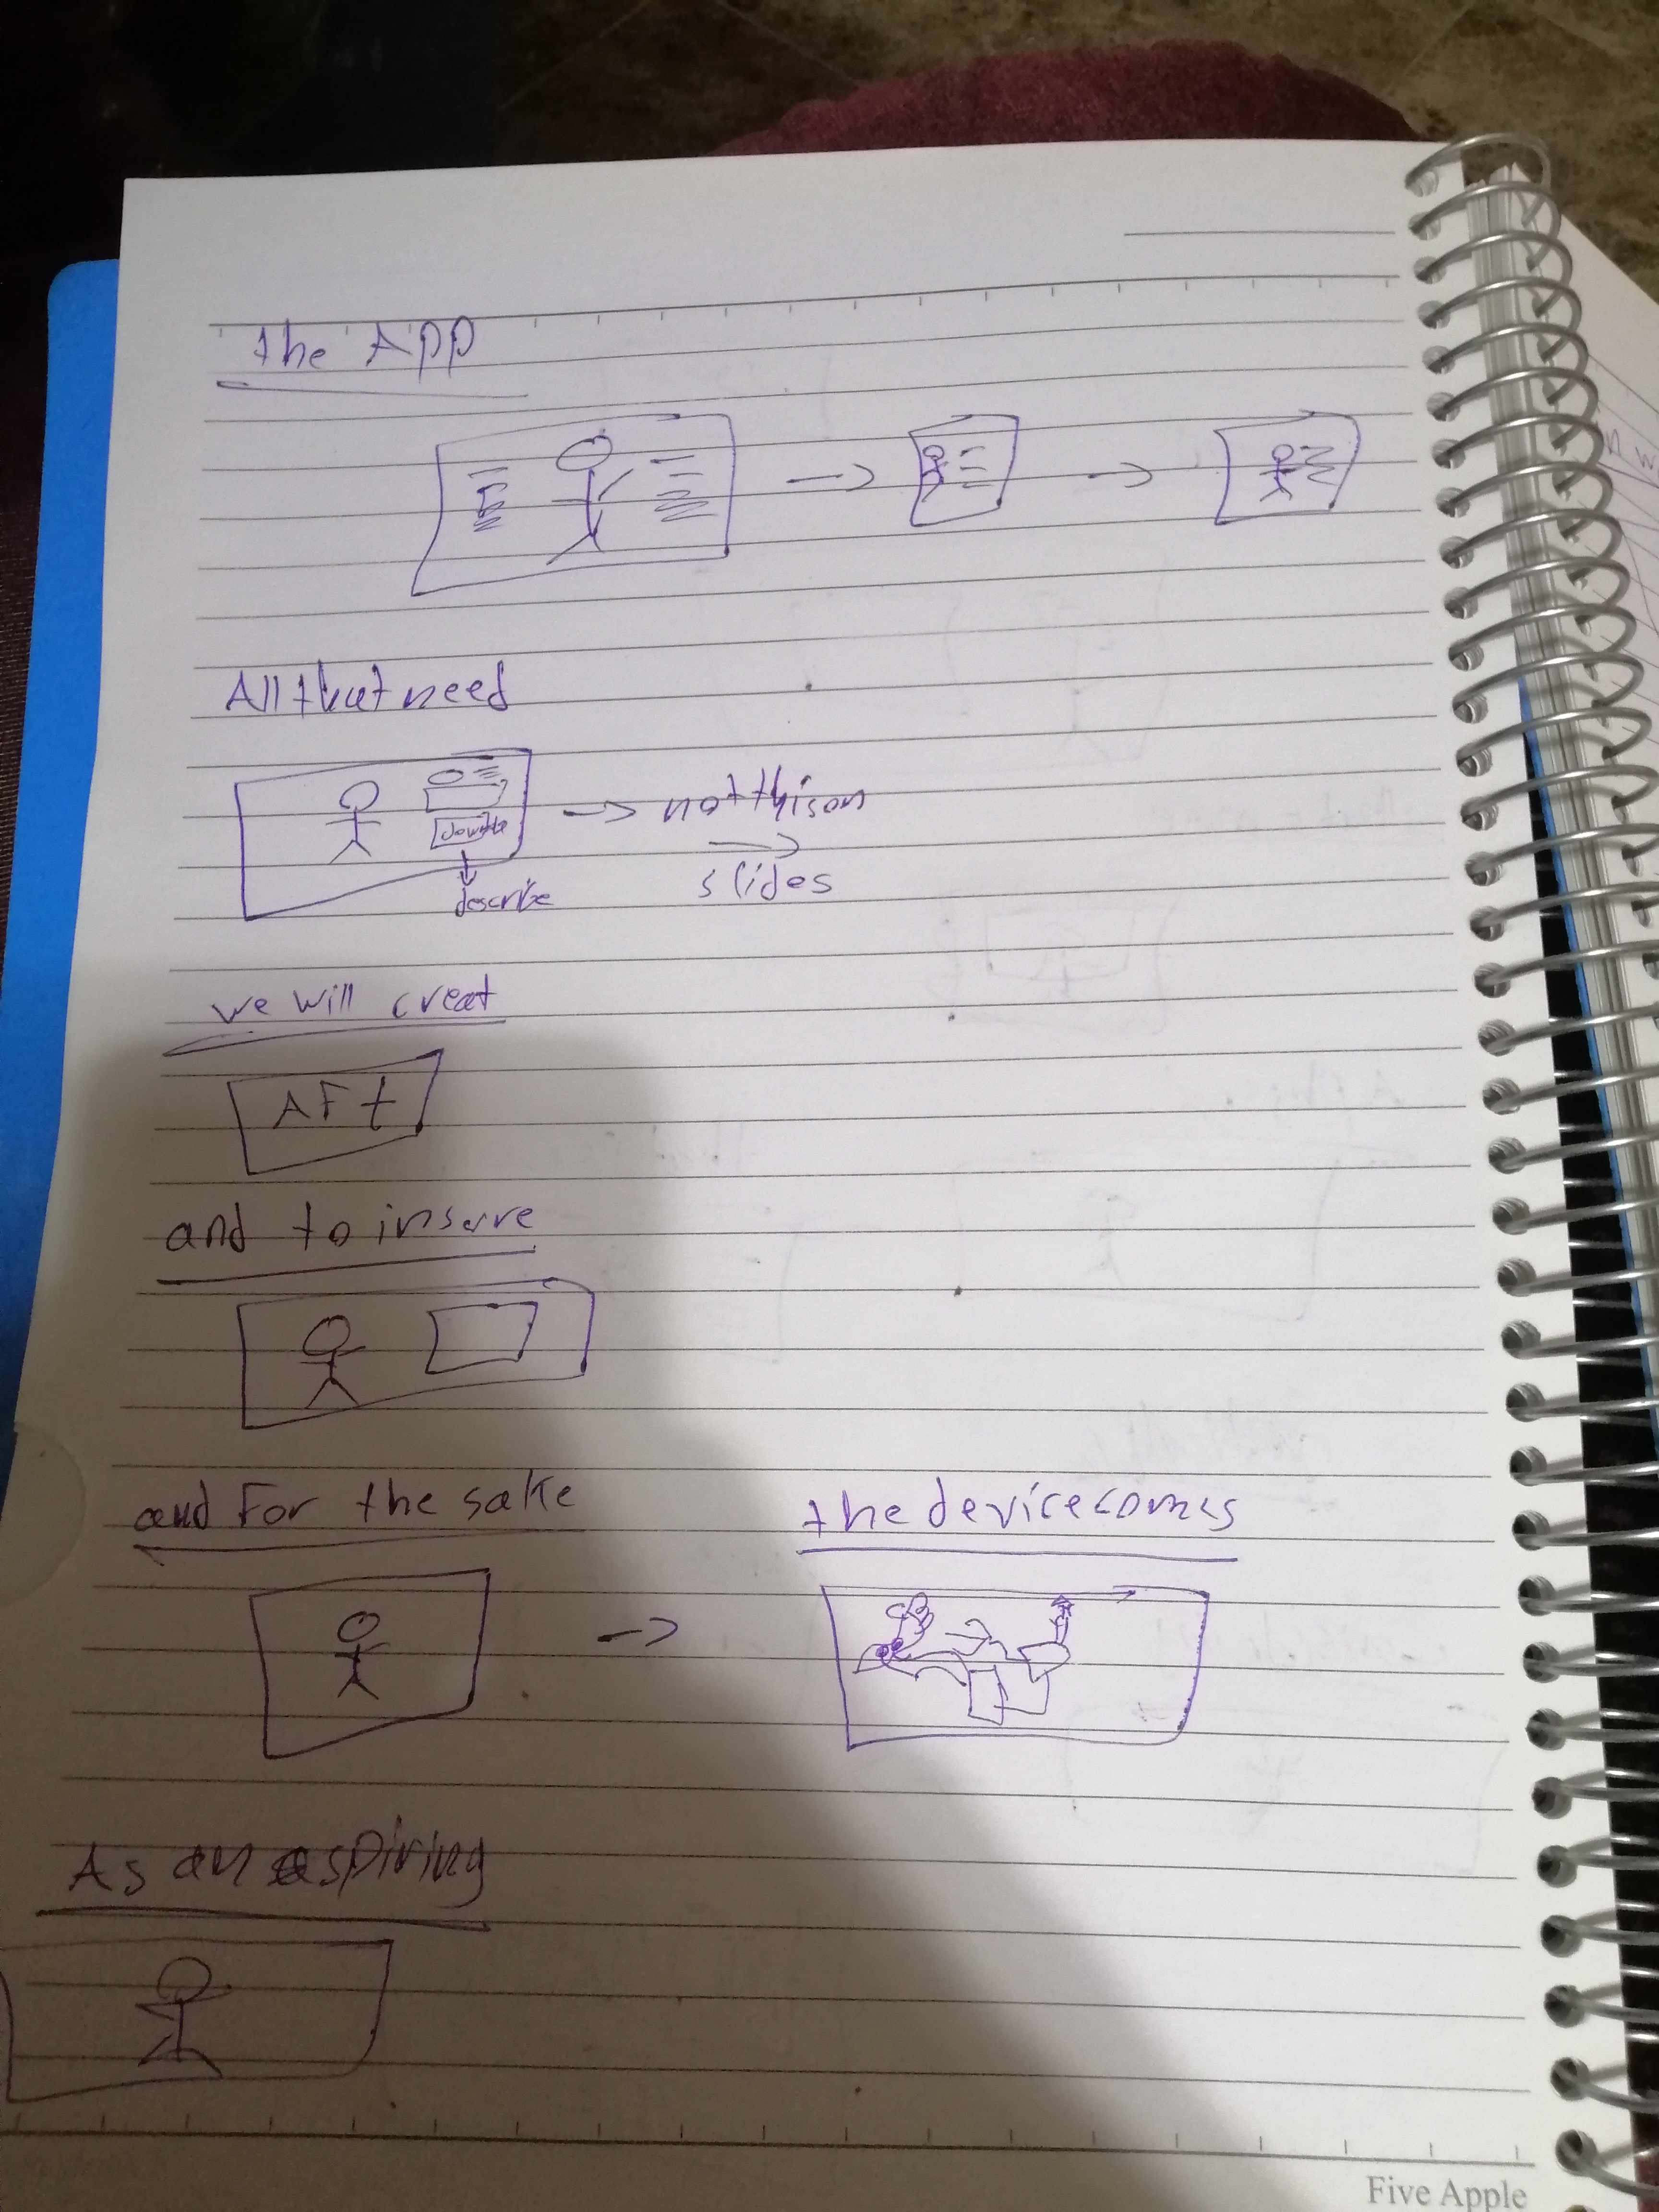 the App
All that need
not this on
slides
describe
we will creat
AFt
and to insure
and For the sake
the device comes
As an aspiring
Five Apple